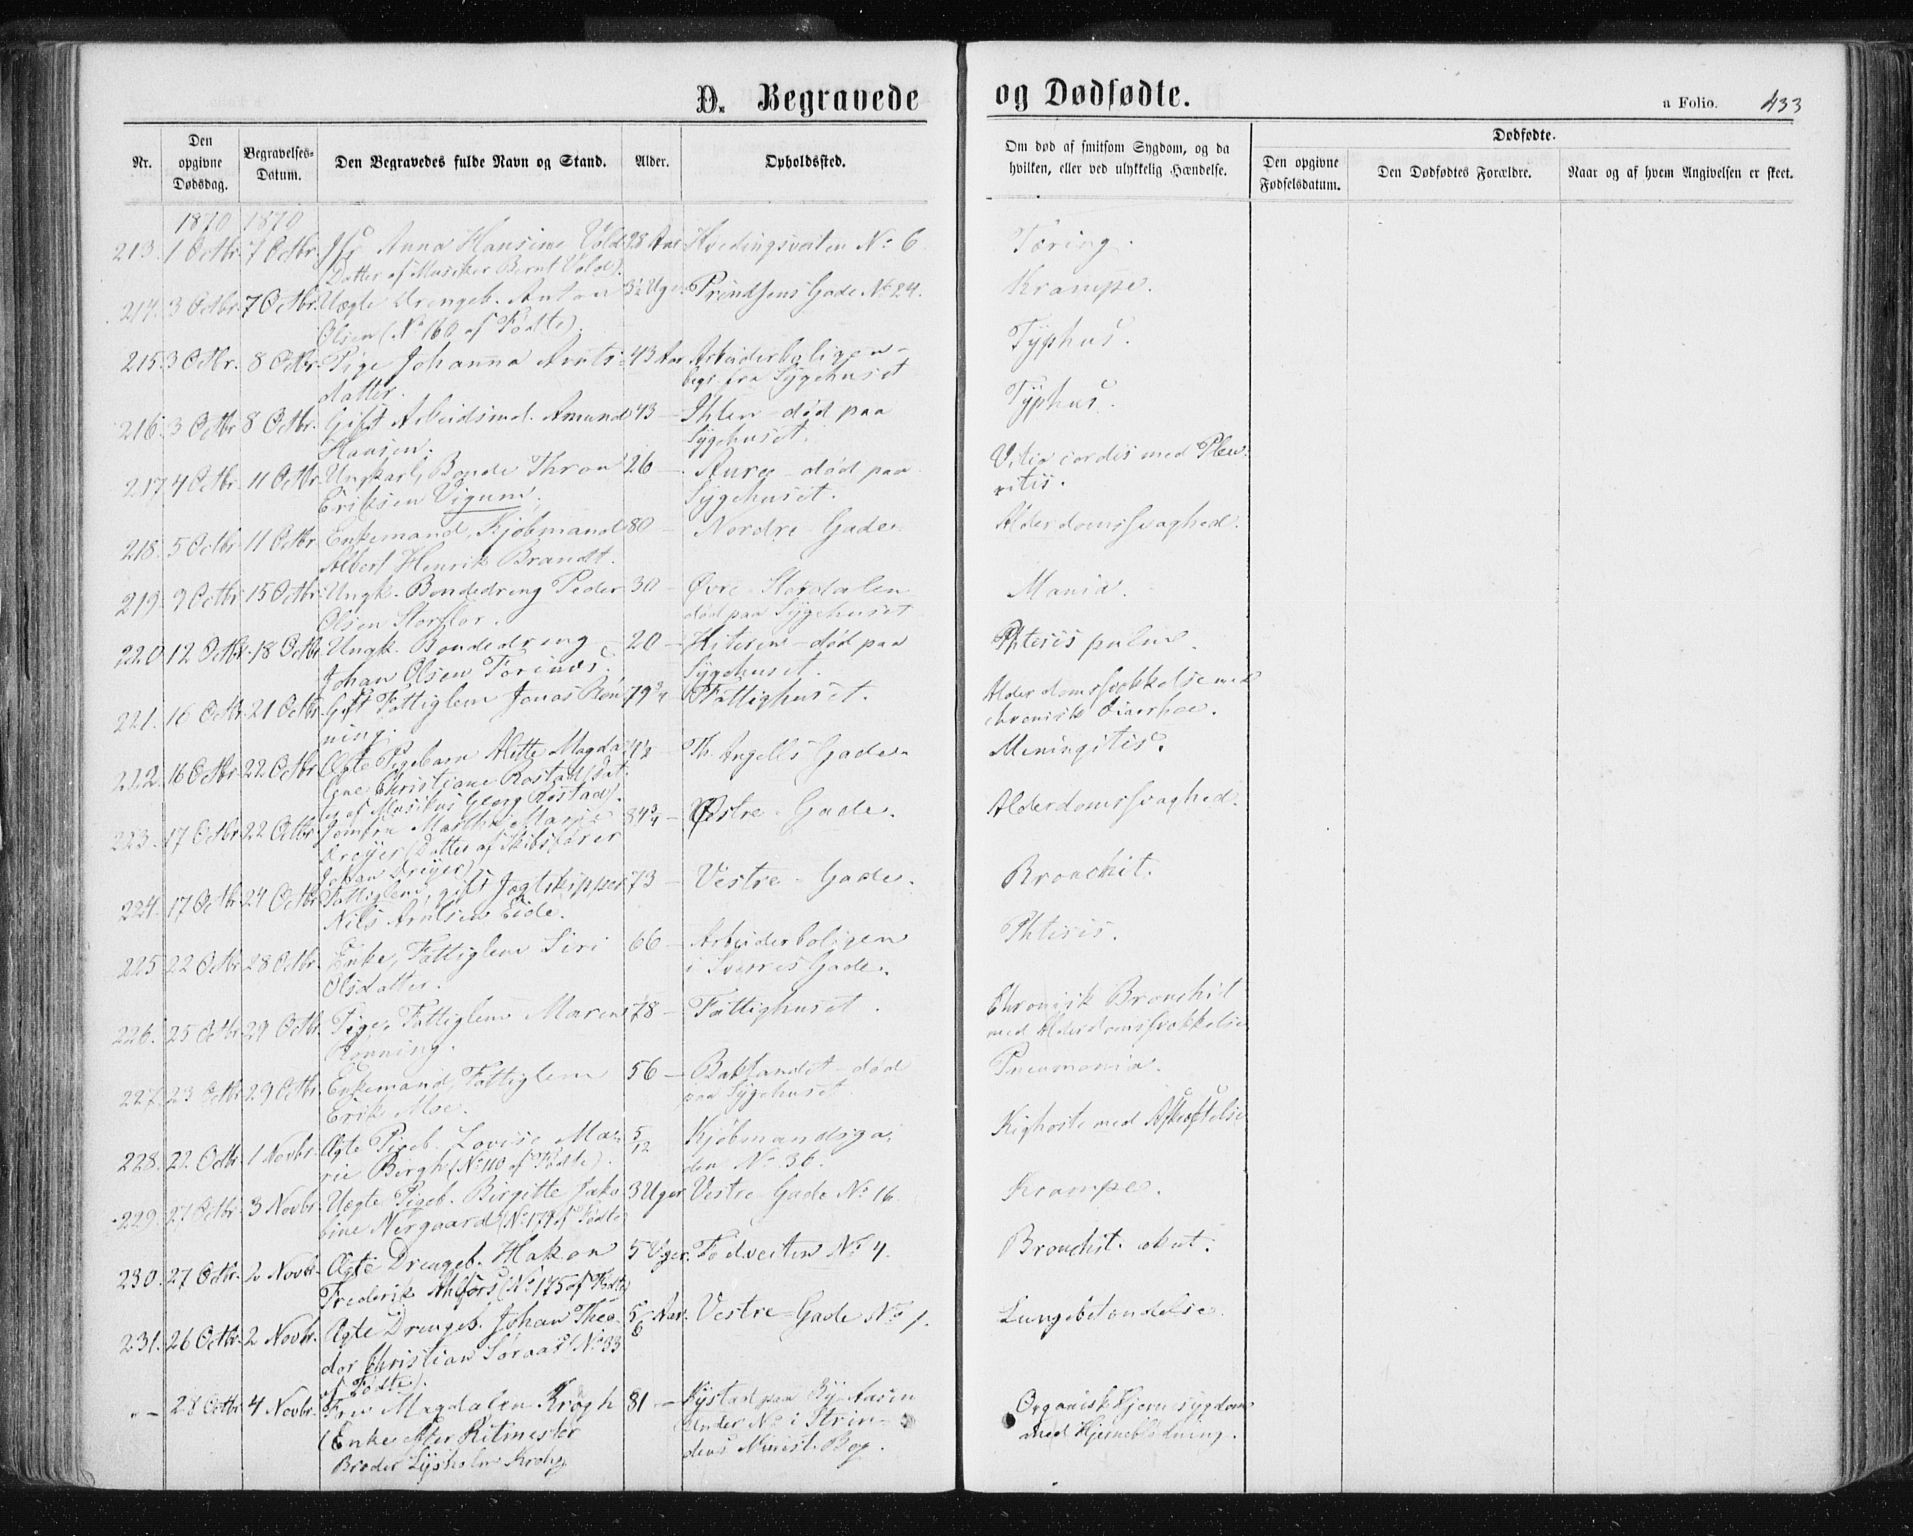 D. Begravede og Dødfødte.
a Folio. 433
Nr.
Den opgivne Dødsdag.
Begravelses-Datum.
Den Begravedes fulde Navn og Stand.
Alder.
Opholdssted.
Om død af smitsom Sygdom, og da hvilken, eller ved ulykkelig Hændelse.
Dødfødte.
Den opgivne Fødselsdatum.
Den Dødfødtes Forældre.
Naar og af hvem Angivelsen er skeet.
1870 1870
213. 1 Octbr. 7 Octbr. Anna Hansine Vold 28 Aar Hvedingsveiten No 6 Tæring.
Datter af Musiker Bernt Vold).
214. 3 Octbr. 7 Octbr. Uægte Drengeb. Anton 3½ Uger Prindsens Gade No 24. Krampe.
Olsen (No 160 af Fødte).
215. 3 Octbr. 8 Octbr. Pige Johanna Arnts- 43 Aar Arbeiderboligen - Typhus.
datter. begr. fra Sygehuset
216. 3 Octbr. 8 Octbr. Gift Arbeidsmd. Amund 43 — Ihlen - død paa Typhus.
Hansen. Sygehuset.
217. 4 Octbr. 11 Octbr. Ungkarl, Bonde Thron 26 — Aure - død paa Vitia cordis med Pleu-
Eriksen Vigum. Sygehuset. ritis.
218. 5 Octbr. 11 Octbr. Enkemand, Kjøbmand 80 — Nordre Gade. Alderdomssvaghed.
Albert Henrik Brandt.
219. 9 Octbr. 15 Octbr. Ungk. Bondedreng Peder 30 — Øvre Stordalen Mania.
Olsen Storflor. død paa Sygehuset
220. 12 Octbr. 18 Octbr. Ungk. Bondedreng 20 — Hiteren - død paa Phtisis pulm.
Johan Olsen Sygehuset.
221. 16 Octbr. 21 Octbr. Gift Fattiglem Jonas Røn- 79¾ Fattighuset. Alderdomssvækkelse med
ning. chronisk Diarrhoe.
222. 16 Octbr. 22 Octbr. Ægte Pigebarn Alette Magda- Th. Angells Gade. Meningitis.
lene Christiane Rostad (Dat-
ter af Musikus Georg Rostad).
223. 17 Octbr. 22 Octbr. Jomfru Marthe Marie 84¾ — Østre Gade. Alderdomssvaghed.
Dreyer (Datter af Skibsfører
Johan Dreyer)
224. 17 Octbr. 24 Octbr. Fattiglem, gift Jagtskipper 73 — Vestre Gade. Bronchit.
Nils Arntsen Eide.
225. 22 Octbr. 28 Octbr. Enke, Fattiglem Siri 66 — Arbeiderboligen Phtisis.
Olsdatter. i Sverres Gade.
226. 25 Octbr. 29 Octbr. Pige, Fattiglem Maren 78 — Fattighuset. Chronisk Bronchit
Rønning. med Alderdomssvækkelse
227. 23 Octbr. 29 Octbr. Enkemand, Fattiglem 56 — Baklandet - død Pneumonia.
Erik Moe. paa Sygehuset.
228. 22 Octbr. 1 Novbr. Ægte Pigeb. Lovise Ma- 5/12 Kjøbmandsga- Kighoste med Afkræftelse
rie Birgh (No 110 af Fødte). den No 36.
229. 27 Octbr. 3 Novbr. Uægte Pigeb. Birgitte Jako- 3 Uger Vestre Gade No 16. Krampe.
bine Nergaard (No 179 af Fødte
230. 27 Octbr. 2 Novbr. Ægte Drengeb. Hakon 5 Uger. Fodveiten No 4. Bronchit. akut.
Frederik Ahlfors (No 175 af Fødte)
231. 26 Octbr. 2 Novbr. Ægte Drengeb. Johan Theo- 5/6 Aar. Vestre Gade No 1. Lungebetændelse.
dor Christian Soraas (No 33
af Fødte).
" - 28 Octbr. 4 Novbr. Fru Magdalen Krogh 81 — paa By-Aasen Organisk Hjernesygdom
(Enke efter Ritmester under No i Strin- med Hjerneblødning.
Broder Lysholm Krogh dens Minist. Bog.